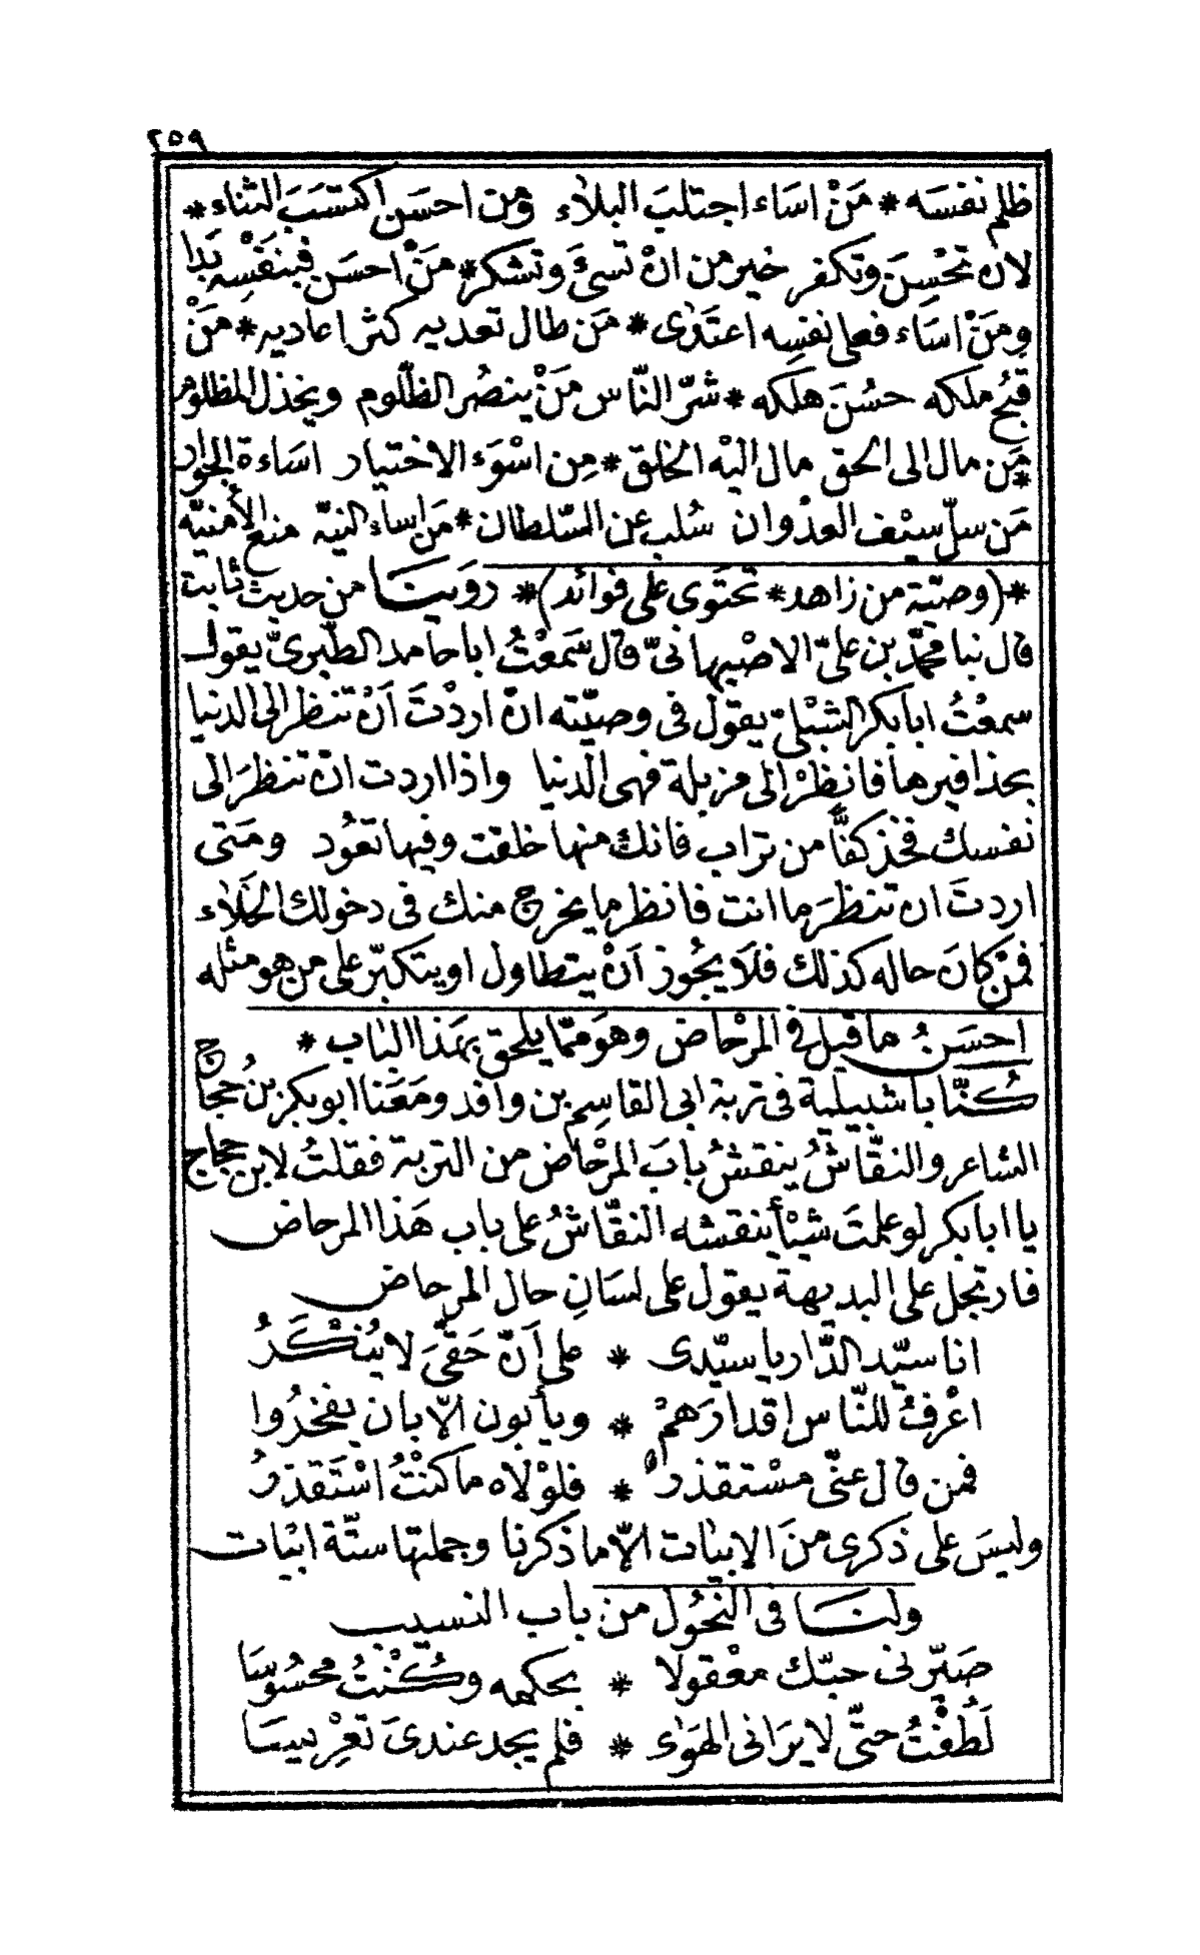 ٢٥٩
ظلم نفسه * مَنْ اسَاء اجتلبَ البلاء ومن احسَن اكتسَبَ الثناء *
لان تحْسِنَ وتكفر خير من انْ تسئَ وتشكر * مَنْ احسَن فبنفْسِه بَدا
ومَنْ اسَاء فعلى نفسِه اعتَدى * مَن طال تعديه كثر اعاديه * مَنْ
قبُح ملكه حسُنَ هلكه * شرّ النّاس مَنْ ينصُر الظلُوم ويخذل المظلوم
* مَن مال الى الحق مال اليْه الخلق * مِن اسْوَء الاختيار اسَاءة الجوار
مَن سلّ سيْف العدْوان سُلب عن السّلطان * مَن اساء النيّة منع الأمنيّه
* (وصيّة من زاهد * تحتَوى على فوائد) * روَينَا من حديث ثابت
قال نبا محمّد بن علىّ الاصْبهانىّ قال سَمعْتُ ابا حامد الطّبرىّ يقول
سمعْتُ ابا بكر الشبْلىّ يقول فى وصيّته انْ اردْتَ أنْ تنظر الى الدنيا
بحذافيرها فانظرْ الى مزبلة فهى الدنيا واذا اردت انْ تنظرَ الى
نفسك فخذ كفًّا من تراب فانك منها خلقت وفيها تعُود ومَتى
اردتَ ان تنظرَ ما انت فانظر ما يخرج منك فى دخولك الخلاء
فمَن كانَ حاله كذلك فلَا يجُوز أنْ يتطاول او يتكبّر على من هو مثله
احسَنُ ما قيل فى المرْحاض وهوَ ممّا يلحق بهَذا البَاب *
كُنّا باشبيلية فى تربة ابى القاسِم بن وافد ومَعَنا ابو بكر بنُ حجاج
الشاعر والنقّاشُ ينقشُ بابَ المرْحاض من التربة فقلتُ لابن حجاج
يا ابا بكر لو عملتَ شيْأ ينقشه النقّاشُ على باب هَذا المرحاض
فارتجل على البديهة يقول على لسَانِ حال المرحاض
انا سيّد الدّار يا سيّدى * على أنّ حَقىَ لا يُنْكَرُ
اعْرفُ للنّاس اقدارَهمْ * ويأبون الّا بان يفخرُوا
فمن قال عنّى مسْتقذر * فلوْلاه ما كنْتُ اسْتَقذرُ
وليسَ على ذكرى منَ الابيَات الاّ ما ذكرنا وجملتها ستّة ابْيَات
ولنَا فى النحُول من باب النسيب
صَيّرنى حبّك معْقولا * بحكمه وكُنْتُ محسُوسَا
لَطُفْتُ حتّى لا يرَانى الهوَاء * فلم يجد عندىَ تعْرِيسَا